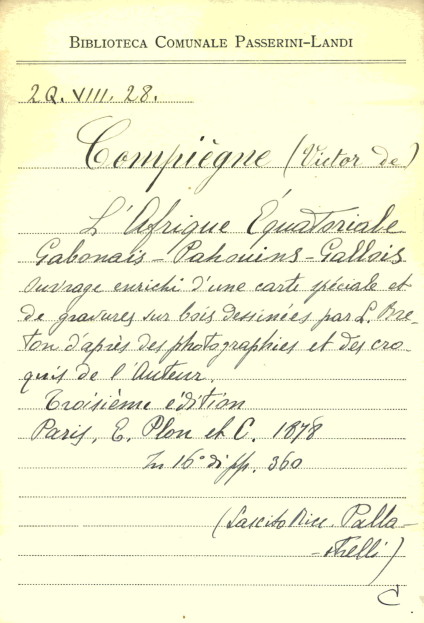 BIBLIOTECA COMUNALE PASSERINI-LANDI
2Q. VIII. 28.
Compiègne (Victor de)
L'Afrique Équatoriale
Gabonais - Pahouins - Gallois
Ouvrage enrichi d'une carte spéciale et
de gravures sur bois dessinées par L. Bre-
ton d'après des photographies et des cro-
quis de l'Auteur.
Troisième édition
Paris, E. Plon et C. 1878
In 16° di pp. 360
(Lascito Ricc. Palla-
-strelli)
C